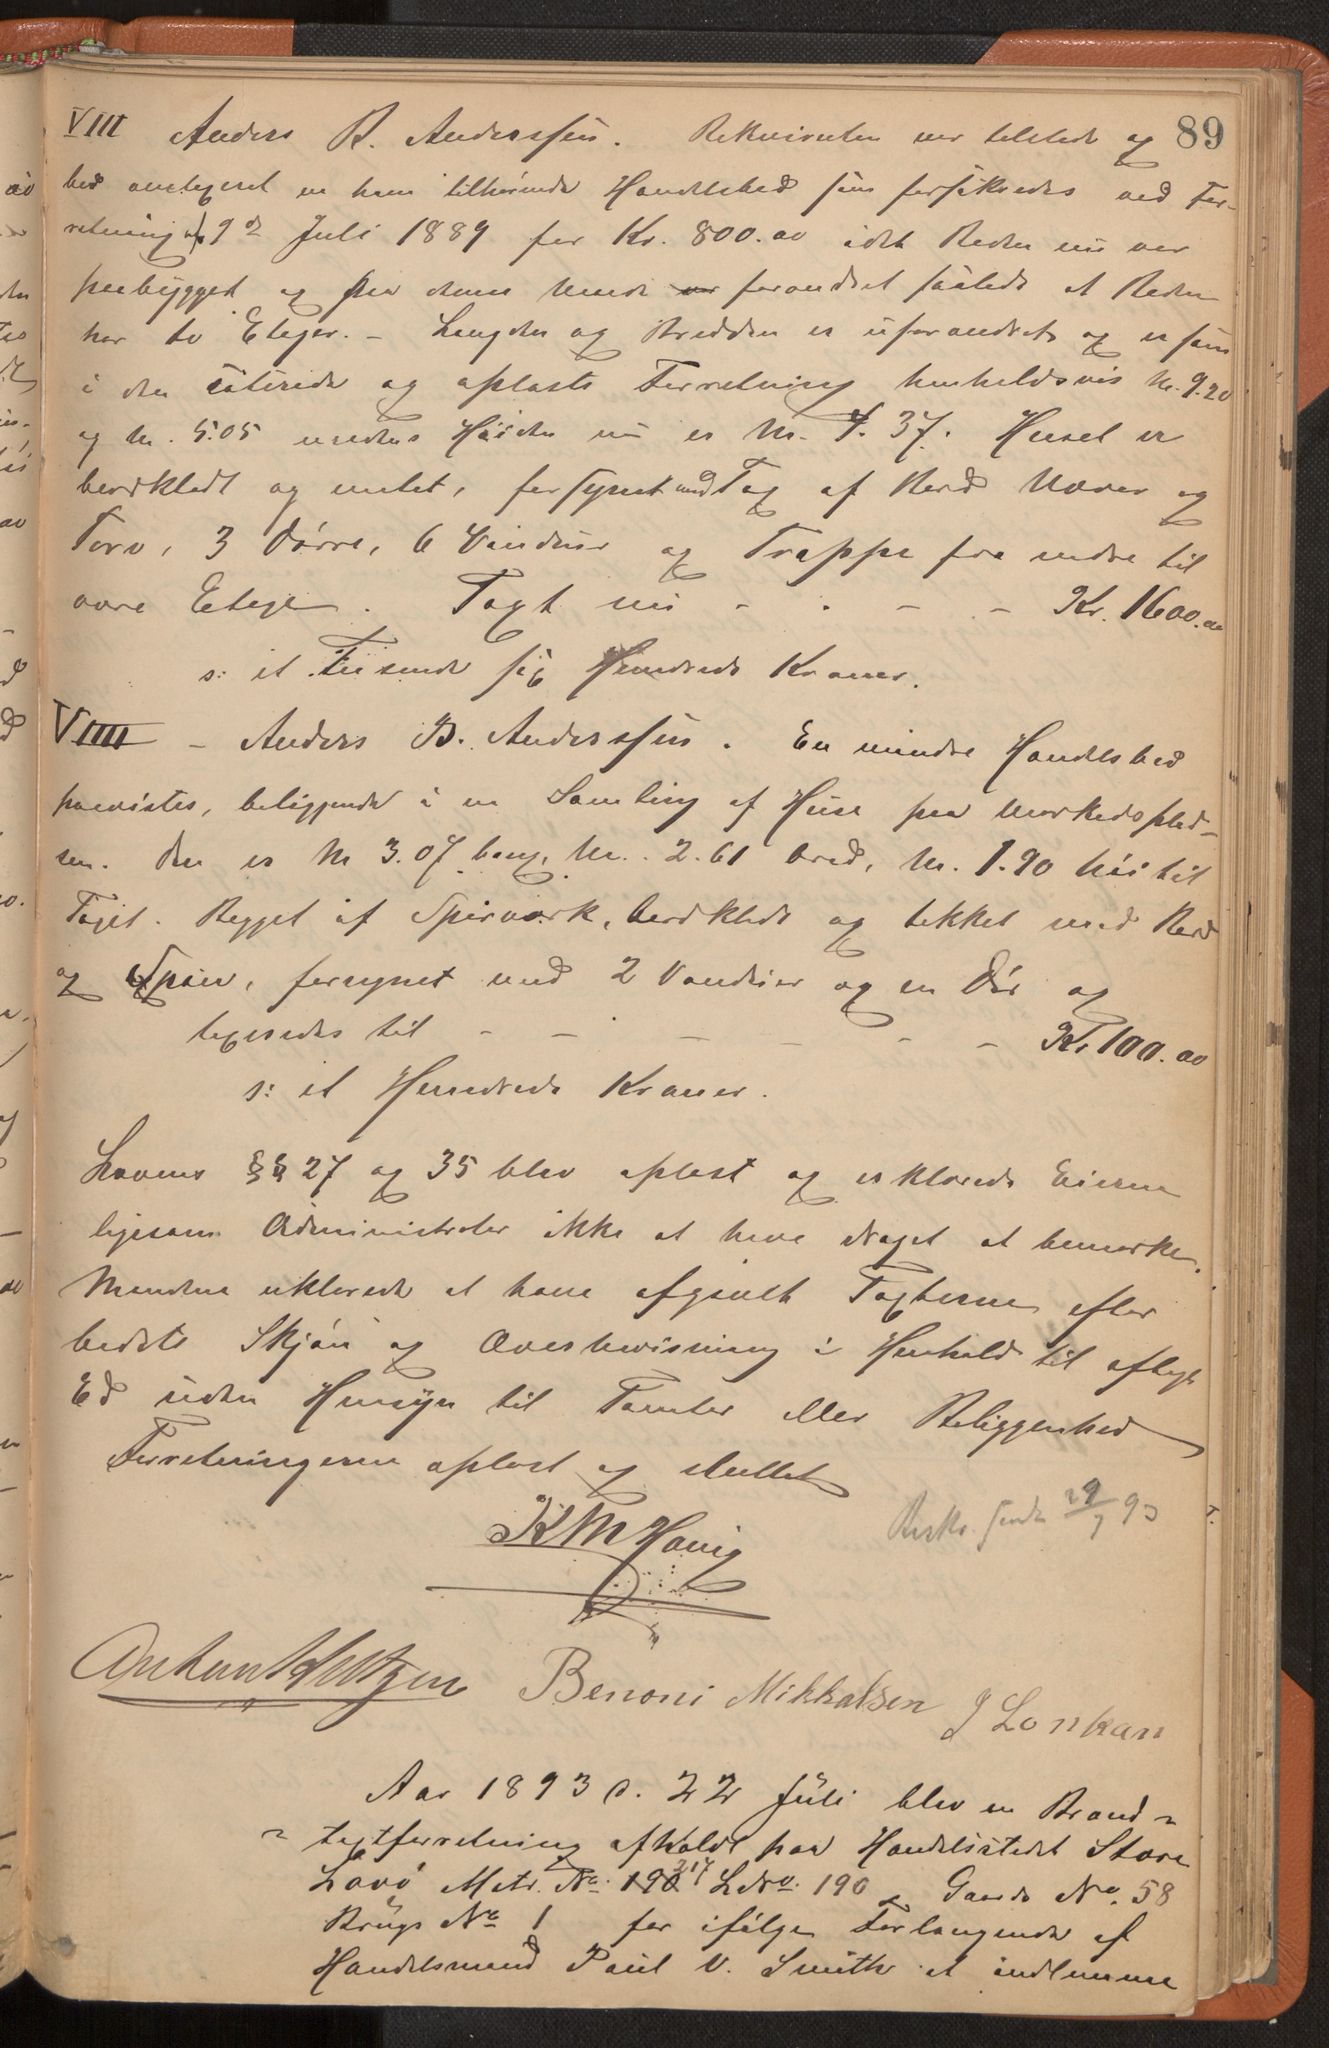 89
VIII Anders B. Anderssen. Rekvirenten var tilstede og
bad omtaxeret en ham tilhørende Handelsbod som forsikredes ved For-
retning af 9de Juli 1889 for Kr. 800.00 idet Boden nu var
paabygget og paa denne Maade forandret saaledes at Boden
har to Etager. - Længden og Bredden er uforandret og er som
i den citerede og oplæste Forretning henholdsvis M. 9.20
og M. 5.05 medens Høiden nu er M. 4.37. Huset er
bordklædt og malet, forsynet med Tag af Bord Næver og
Torv, 3 Dørre, 6 Vinduer og Trappe fra nedre til
øvre Etage. Taxt nu - - - - Kr. 1600.00
s: et Tusende sex Hundrede Kroner.
VIIII - Anders B. Anderssen. En mindre Handelsbod
paavistes, beliggende i en Samling af Huse paa Markedsplad-
sen. Den er M 3.07 lang, M. 2.61 bred, M. 1.90 høi til
Taget. Bygget af Spirværk, bordklædt og tækket med Bord
og Spaan, forsynet med 2 Vinduer og en Dør og
taxeredes til - - - - - - Kr 100.00
s: et Hundrede Kroner.
Lovens §§ 27 og 35 blev oplæst og erklærede Eierne
ligesom Administrator ikke at have Noget at bemærke.
Mændene erklærede at have afgivet Taxterne efter
bedste Skjøn og Overbevisning i Henhold til aflagt
Ed uden Hensyn til Tomter eller Beliggenhed
Forretningerne oplæst og sluttet
K M Havig
Beskr. sendt 29/7 93
Anton Weltzen Benoni Mikkalsen J Lonkan
Aar 1893 d. 22 Juli blev en Brand-
taxtforretning afholdt paa Handelsstedet Store
Lavø Matr. No. 190 217 LNo. 190, Gaards No. 58
Brugs No 1 for ifølge Forlangende af
Handelsmand Paul V. Smith at indlemme